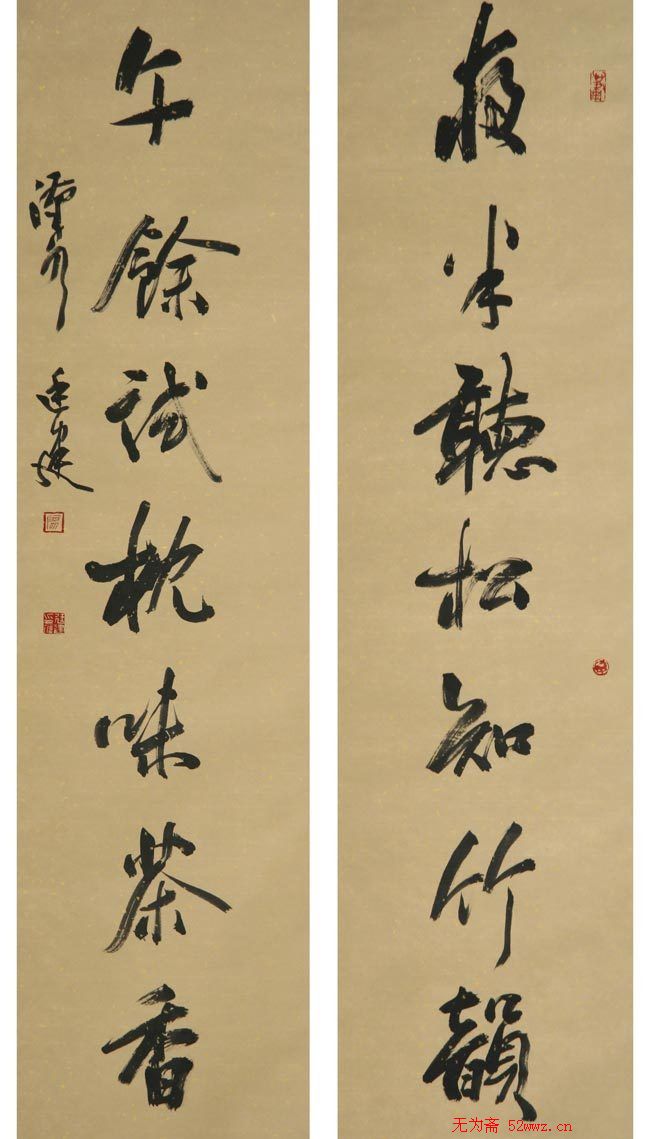 夜半聽松知竹韻
午餘試枕味茶香
无为斋 52wwz.cn